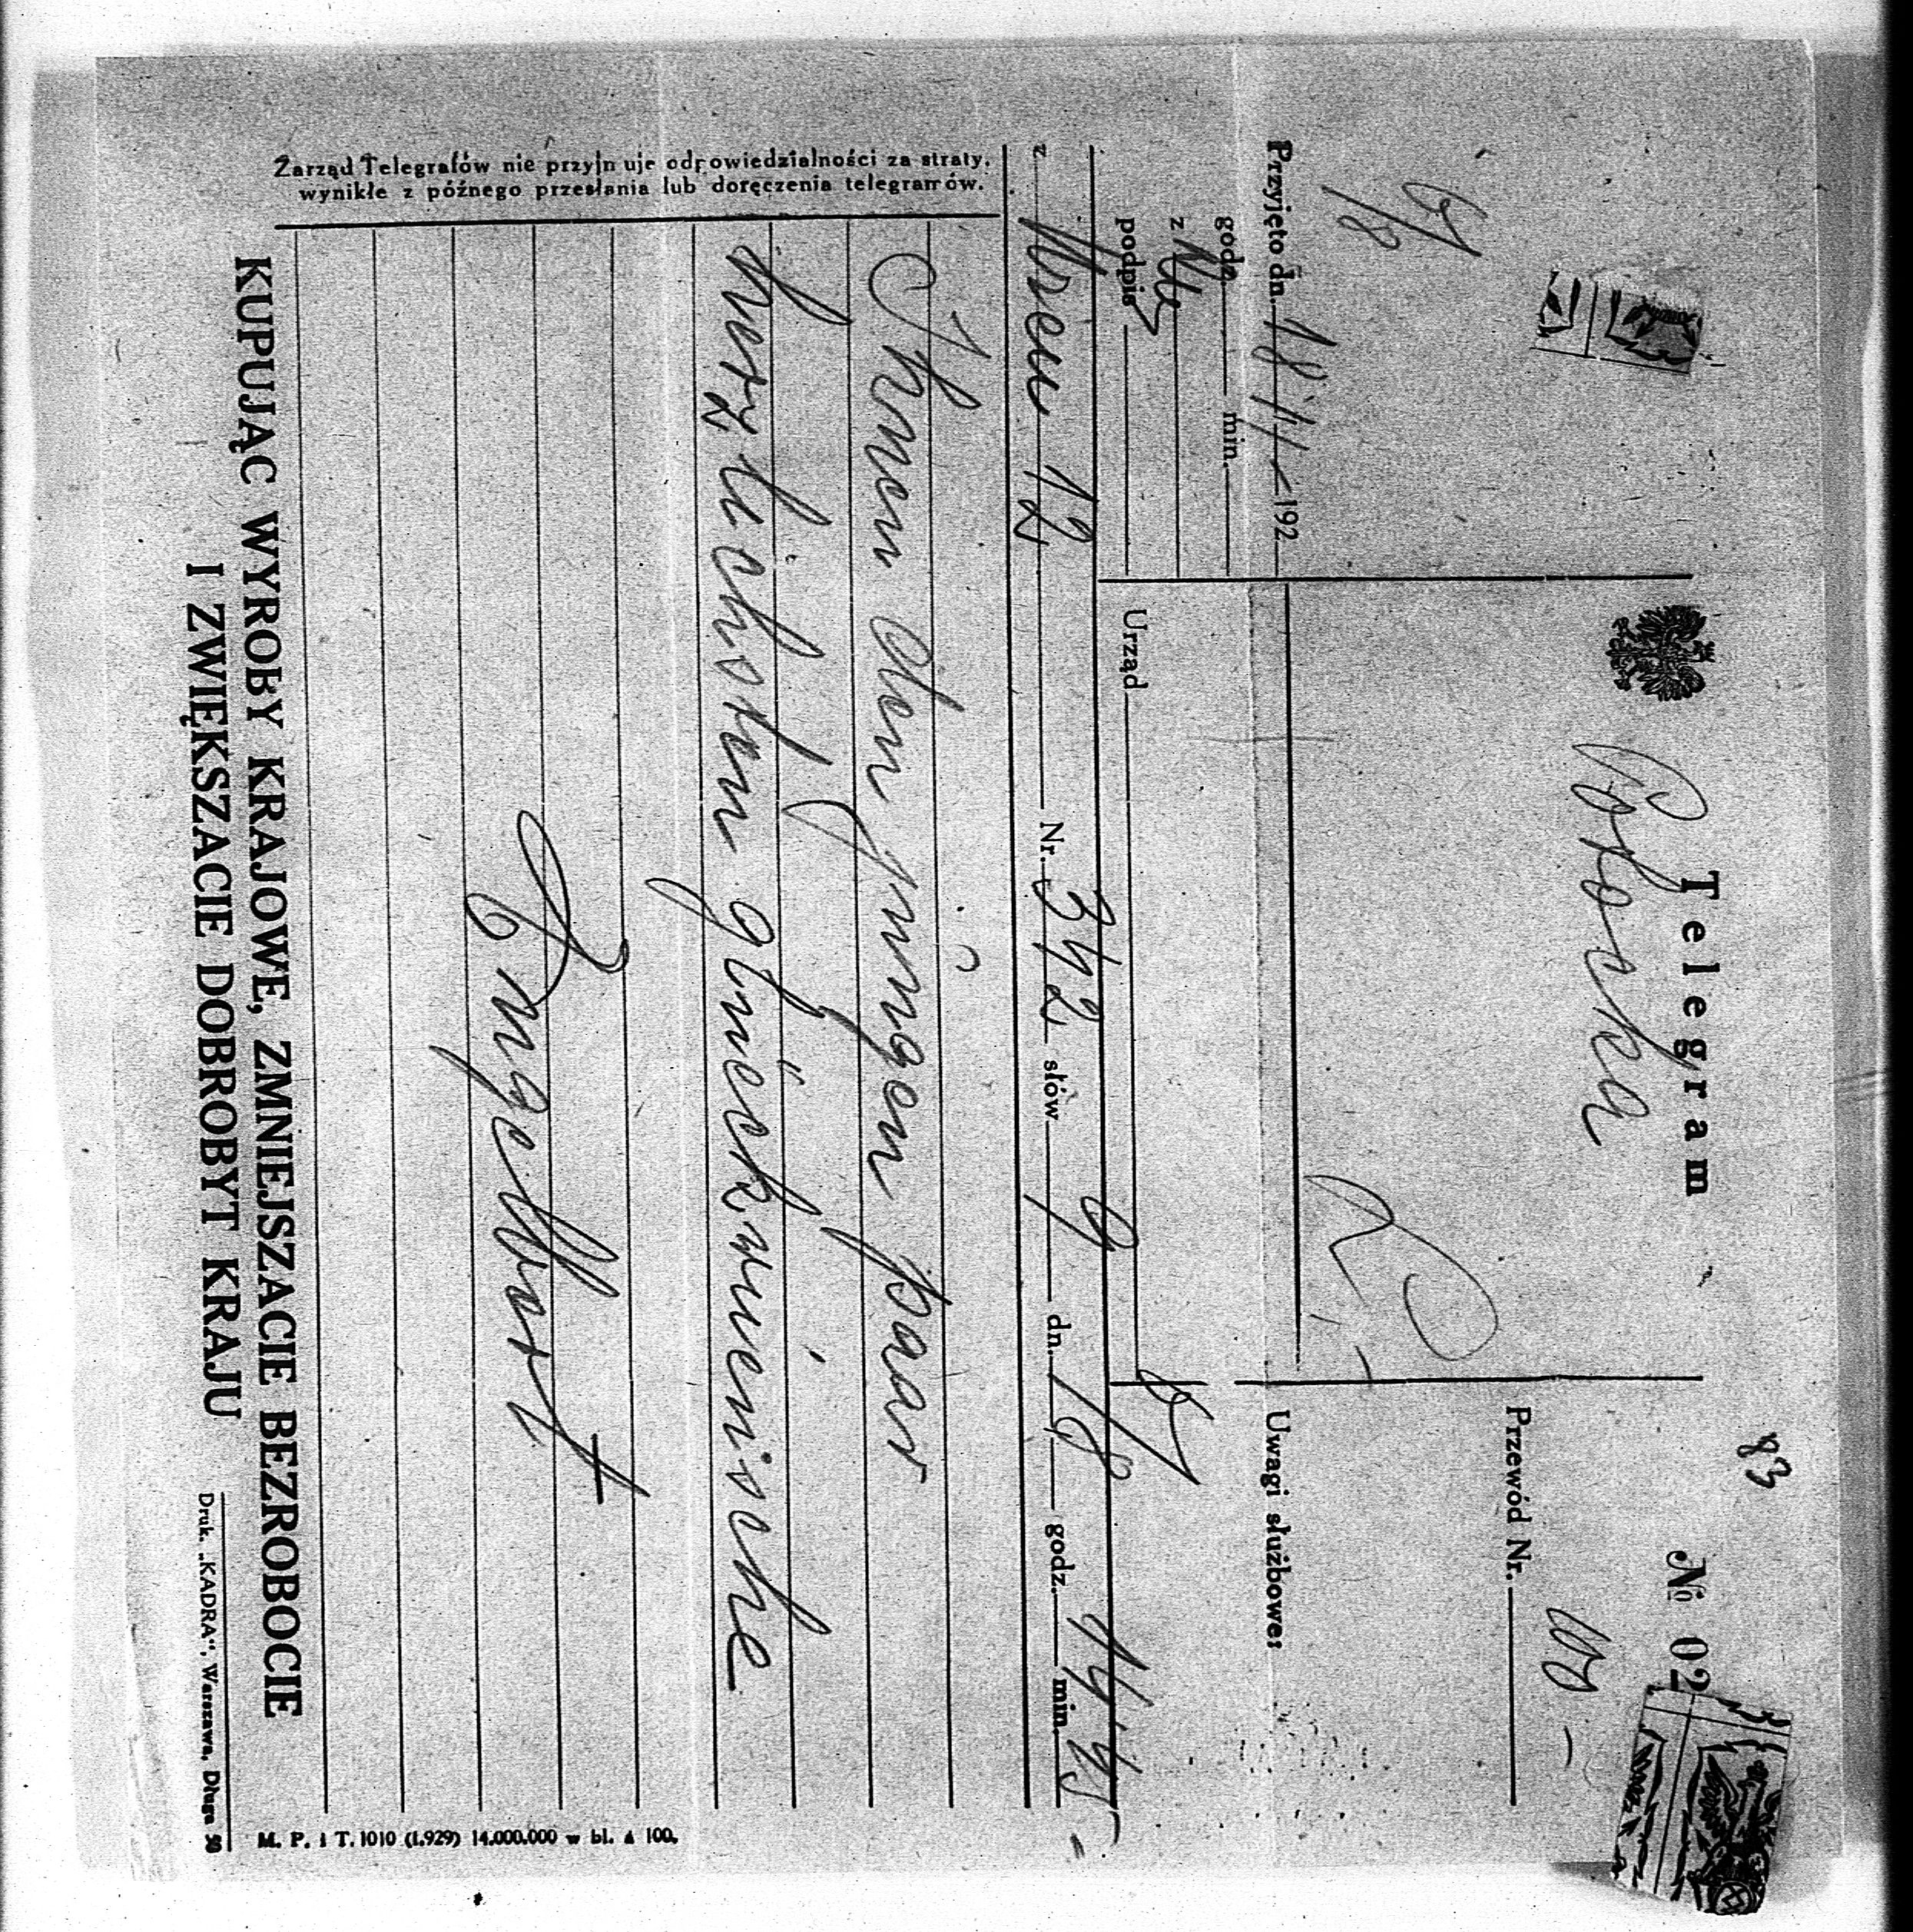 83
Telegram
№ 02
Potocka
Przewód Nr.
Przyjęto dn. 18/1 192
godz. min.
z
podpis
Urząd
Uwagi służbowe:
z Wien 12 Nr. 342 słów 9 dn. 18 godz. 14 min. 45 =
Zarząd Telegrafów nie przyjmuje odpowiedzialności za straty,
wynikłe z późnego przesłania lub doręczenia telegramów.
Ihnen dem jüngem paar
herzlichstem glückwuensche
Engelhart +
KUPUJĄC WYROBY KRAJOWE, ZMNIEJSZACIE BEZROBOCIE
I ZWIĘKSZACIE DOBROBYT KRAJU
Druk. „KADRA“, Warszawa, Długa
M. P. i T. 1010 (I.929) 14.000.000 w bl. à 100.